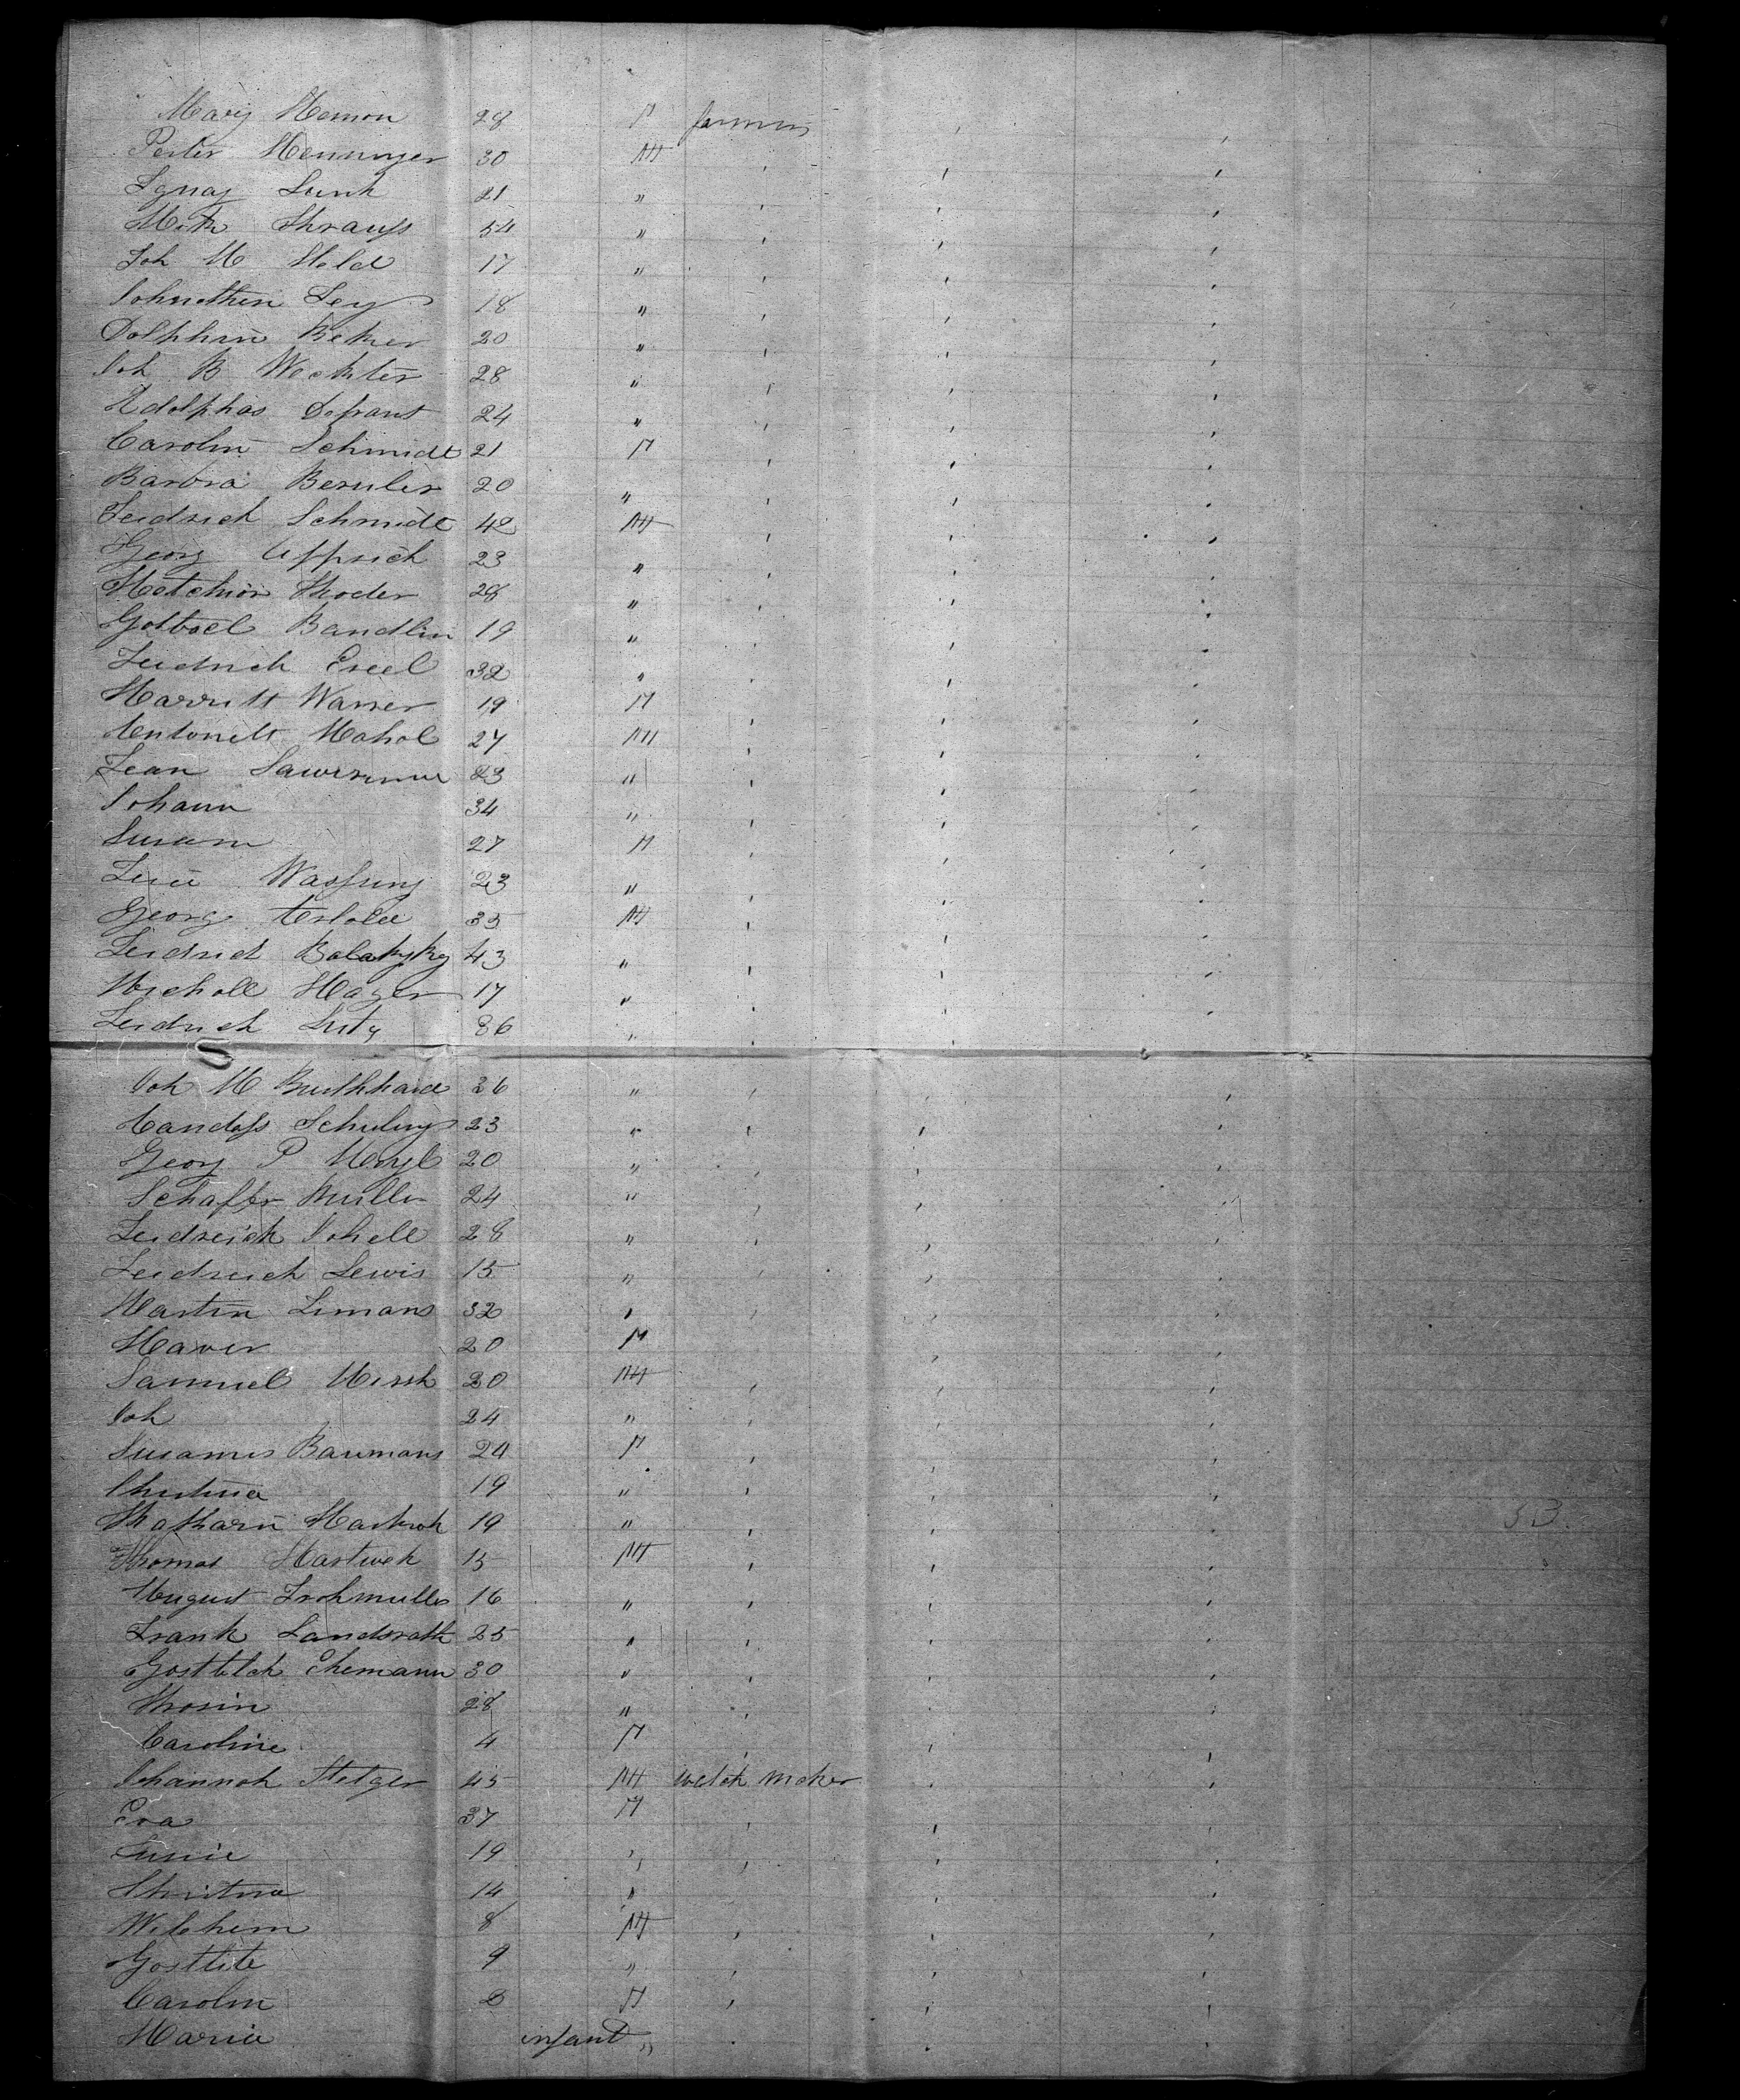 Mary Hemon 28 F farmers
Peter Henninger 30 M
Ignaz Lunk 21 "
Mich Strauss 54 "
Joh M Held 17 "
Johnathen Ley 18 "
Dolphin Beker 20 "
Joh B Wechter 28 "
Adolphas Defrant 24 "
Carolin Schmidt 21 F
Barbra Besuler 20 "
Feidrich Schmidt 42 M
Georg Uffrich 23 "
Melchior Thoder 28 "
Gotboel Bandlin 19 "
Feidrich Esiel 32 "
Harritt Warner 19 F
Antonett Mahol 27 M
Jean 23 "
Johann 34 "
Susann 27 F
23 "
Georg 35 M
Feidrich 43 "
Nicholl Hager 17 "
Feidrich Lutz 36 "
Joh M Burkhard 26 "
Schuling 23 "
Georg P 20 "
Schaffer Muller 24 "
Feidreich Schell 28 "
Feidreich Lewis 15 "
Martin Limans 32 "
20 F
Samuel Hirsh 20 M
Joh 24 "
Susanna Baumans 24 F
Christina 19 "
Katharin Hartwek 19 "
Thomas Hartwek 15 M
August Frohmuller 16 "
Frank Landsrath 25 "
Gosttleb Ehemann 30 "
Rosin 28 "
Caroline 4 F
Johannah Metzger 45 M watch maker
Eva 37 F
19 "
Christina 14 "
Wilchem 8 M
Gosttlib 9 "
Carolin 2 F
Maria infant "
53